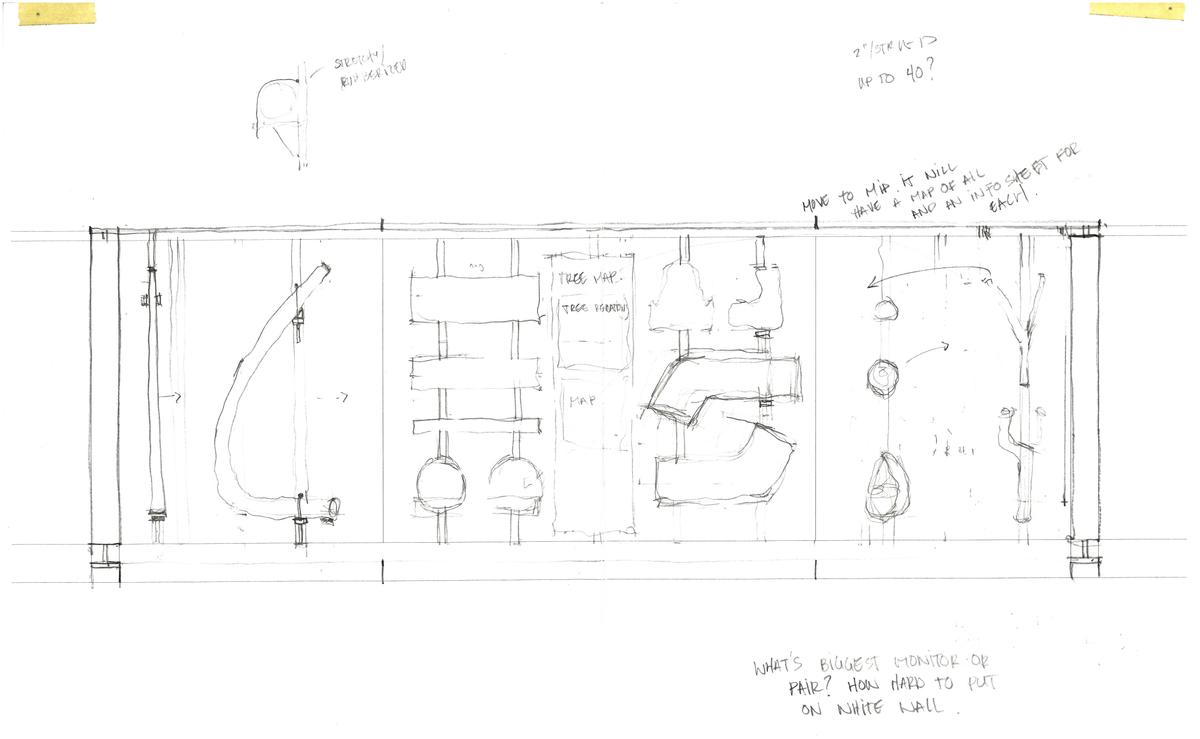 STRETCHY/
RUBBERIZED
UP TO 40?
MOVE TO MID. IT WILL
HAVE A MAP OF ALL
AND AN INFO SHEET FOR
EACH.
TREE MAP
TREE
MAP
WHAT'S BIGGEST MONITOR OR
PAIR? HOW HARD TO PUT
ON WHITE WALL.